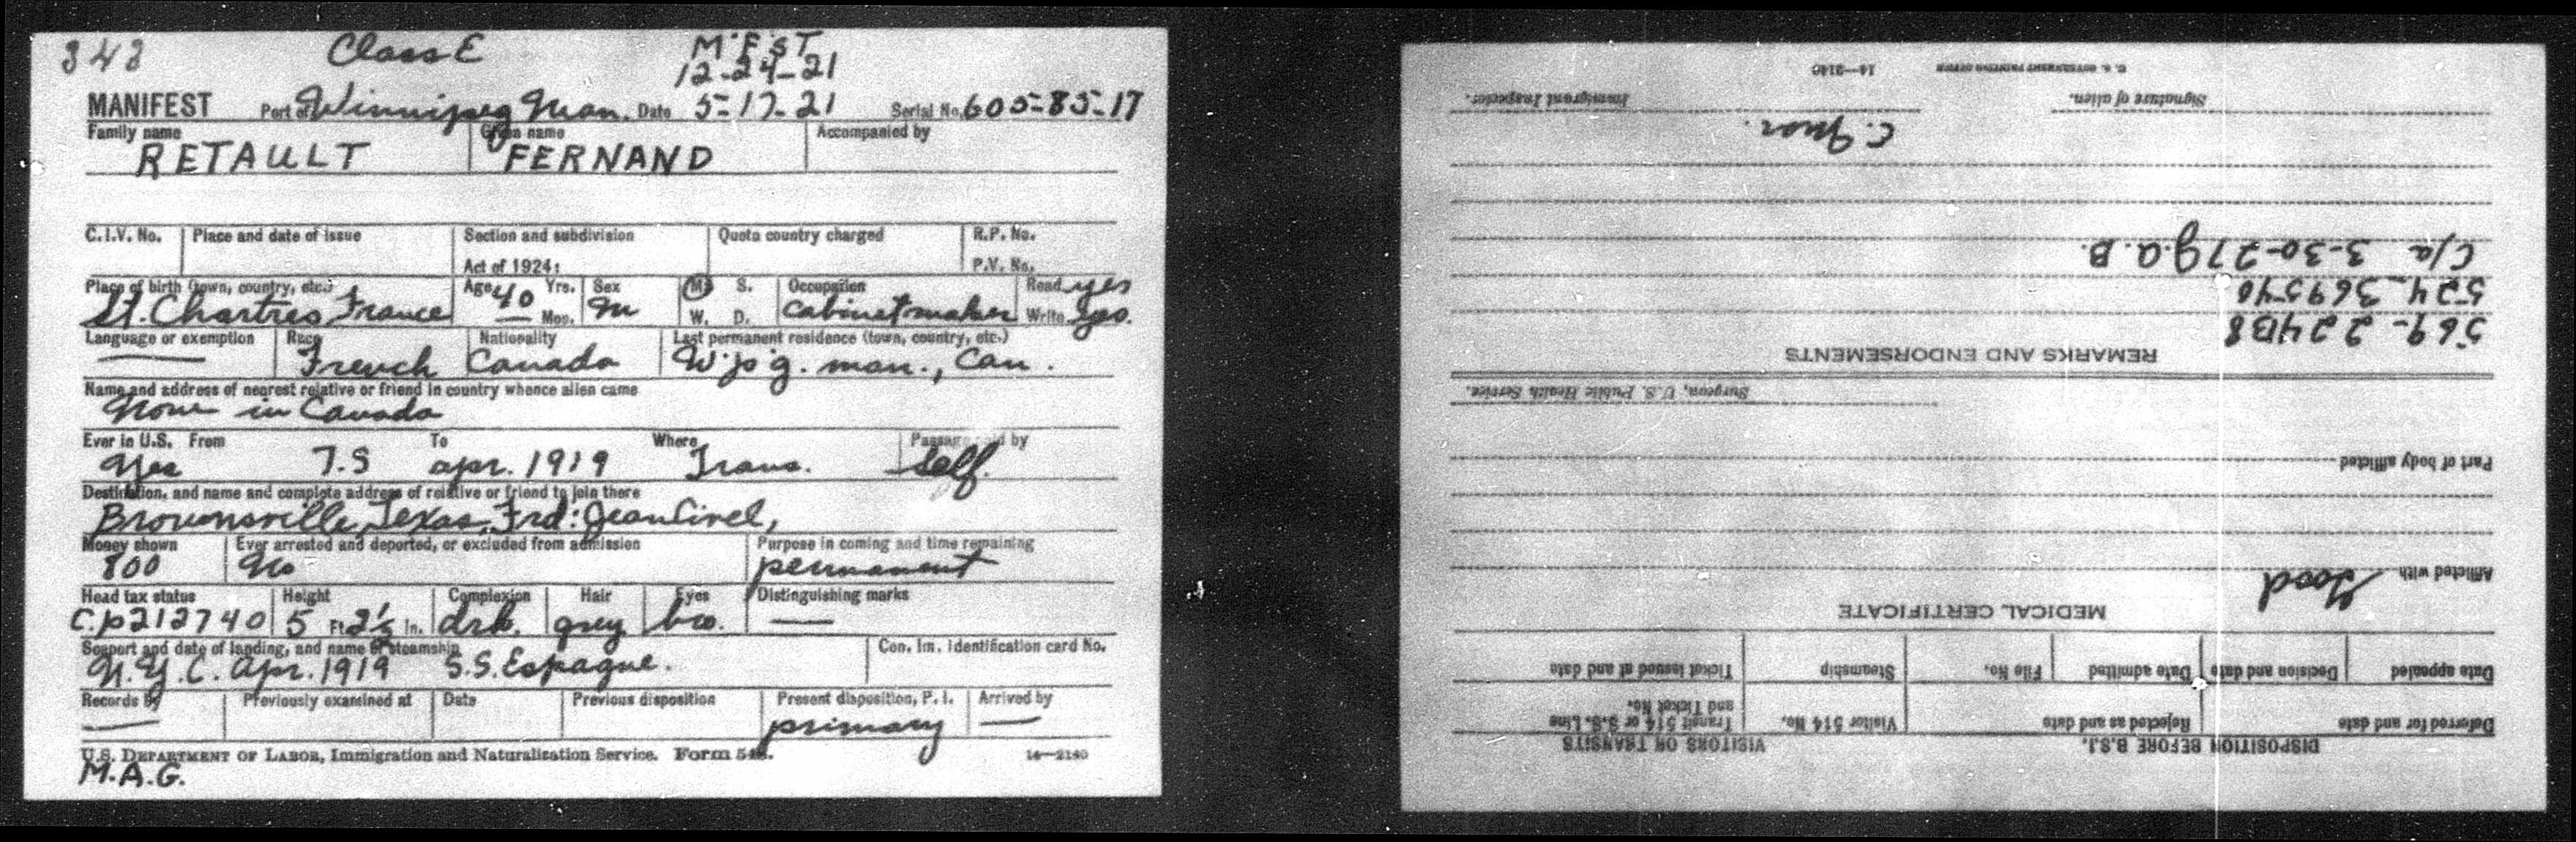 343 Class E M.F.ST
12-24-21
MANIFEST Port of Winnipeg Man. Date 5-17-21 Serial No. 605-85-17
Family name Given name Accompanied by
RETAULT FERNAND
C.I.V. No. Place and date of issue Section and subdivision Quota country charged R.P. No.
Act of 1924: P.V. No.
Place of birth (town, country, etc.) Age 40 Yrs. Sex M S. Occupation Read yes
St. Chartres, France — Mos. M W. D. Cabinetmaker Write yes.
Language or exemption Race Nationality Last permanent residence (town, country, etc.)
— French Canada W'p'g. man., Can.
Name and address of nearest relative or friend in country whence alien came
None in Canada
Ever in U.S. From To Where Passage paid by
Yes T.S apr. 1919 Trans. Self.
Destination, and name and complete address of relative or friend to join there
Brownsville, Texas, Frd: Jean Civel,
Money shown Ever arrested and deported, or excluded from admission Purpose in coming and time remaining
800 No permanent
Head tax status Height Complexion Hair Eyes Distinguishing marks
C.p212740 5 Ft. 2½ In. drk. grey bro. —
Seaport and date of landing, and name of steamship Con. Im. identification card No.
N.Y.C. Apr. 1919 S.S. Espagne.
Records by Previously examined at Date Previous disposition Present disposition, P. I. Arrived by
— primary —
U.S. DEPARTMENT OF LABOR, Immigration and Naturalization Service. Form 548. 14—2140
M.A.G.
DISPOSITION BEFORE B.S.I. VISITORS OR TRANSITS
Deferred for and date Rejected as and date Visitor 514 No. Transit 514 or S.S. Line
and Ticket No.
Date appealed Decision and date Date admitted File No. Steamship Ticket issued at and date
MEDICAL CERTIFICATE
Afflicted with Good
Part of body afflicted
Surgeon, U.S. Public Health Service.
REMARKS AND ENDORSEMENTS
569-224B8
524-369540
C/a 3-30-27 G.A.B.
Signature of alien. Immigrant Inspector.
U. S. GOVERNMENT PRINTING OFFICE 14—2140